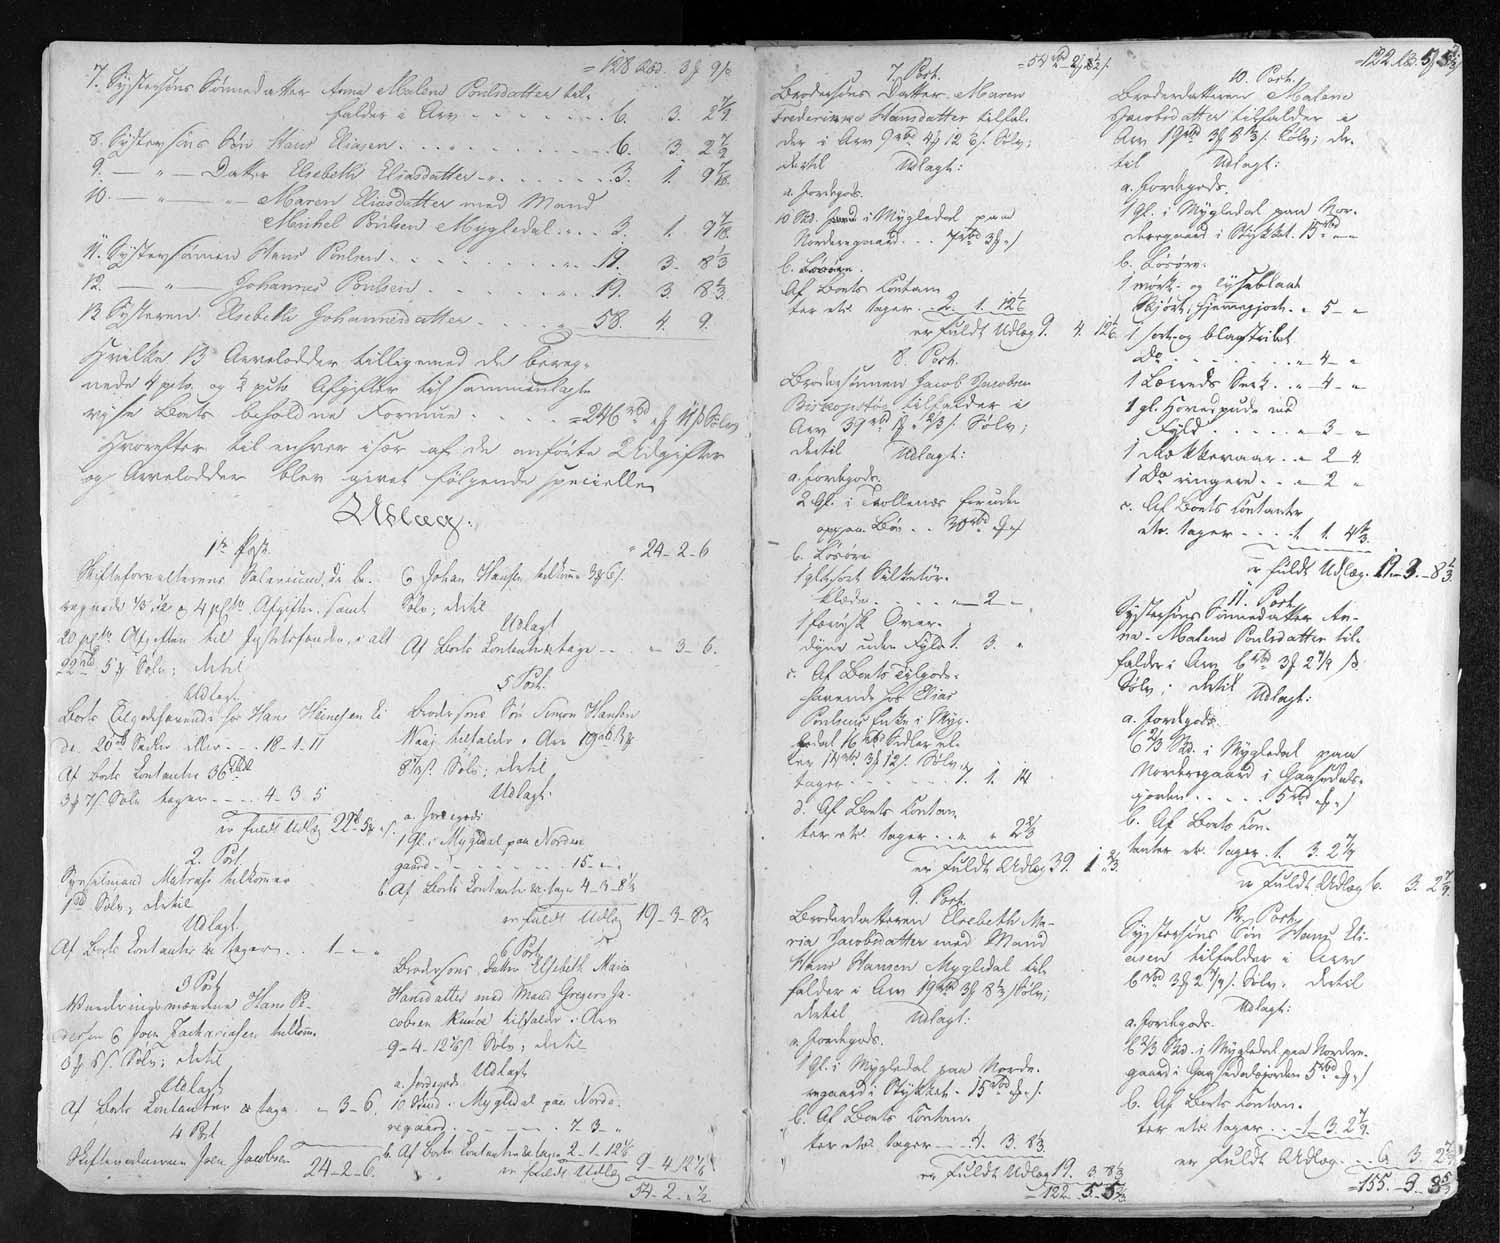 = 128 Rbd. 3 ℔ 9 ß
7. Systersøns Sønnedatter Anna Malene Poulsdatter til-
falder i Arv . . . . . . 6. 3. 2 7/9
8. Systersøns Søn Hans Eliasen . . . . . . 6. 3. 2 7/9
9. — " — Datter Elsebeth Eliasdatter . . . . . 3. 1. 9 7/18
10. — " — " — Maren Eliasdatter med Mand
Michel Poulsen Mygledal . . . 3. 1. 9 7/18
11. Systersønnen Hans Poulsen . . . . . . 19. 3. 8 1/3
12. — " — Johannes Poulsen . . . . . . 19. 3. 8 1/3
13. Systeren Elsebeth Johannesdatter . . . . 58. 4. 9.
Hvilke 13 Arvelodder tilligemed de bereg-
nede 4 pcto. og ½ pcto Afgifter tilsammenlagte
vise Boets beholdne Formue . . . = 246 rbd " ℔ 11 ß Sølv
Hvorefter til enhver især af de anførte Udgifter
og Arvelodder blev givet følgende specielle
Udlæg.
1te Post.
Skifteforvalterens Salarium, de be-
regnede ½ & 4 pCto Afgifter samt
20 pCto Afgiften til Justitsfonden, i alt
22 rbd 5 ℔ Sølv; dertil
Udlagt
Boets Tilgodehavende hos Hans Heinesen Ei-
de 20 rbd Sedler eller . . . 18 - 1 - 11
Af Boets Contanter 36 rbd
3 ℔ 7 ß Sølv tager . . . . 4 - 3 5
er fuldt Udlæg 22 rbd 5 ℔ " ß
2. Post.
Sysselmand Matras tilkommer
1 rbd Sølv; dertil
Udlagt.
Af Boets Contanter &c tages . . 1 - " "
3 Post
Vurderingsmændene Hans Pe-
dersen & Joen Zachariasen tilkom.
3 ℔ 6 ß Sølv; dertil
Udlagt
Af Boets Contanter &c tage . " - 3 - 6.
4 Post
Skiftevidnerne Joen Jacobsen
24 - 2 - 6
" 24 - 2 - 6
& Johan Hansen tilkomme 3 ℔ 6 ß
Sølv; dertil
Udlagt
Af Boets Contanter &c tage . . " - 3 - 6.
5 Post.
Brodersøns Søn Simon Hansen
Waag tilfalder i Arv 19 rbd 3 ℔
8 1/3 ß Sølv; dertil
Udlagt.
a. Jordegods
1 Gl. i Mygledal paa Nordre
gaard . . . . . . 15 - " -
b. Af Boets Contanter &c tage 4 - 3 - 8 1/3
er fuldt Udlæg 19 - 3 - 8 1/3
6 Post.
Brodersøns Datter Elsebeth Maria
Hansdatter med Mand Gregers Ja-
cobsen Kunøe tilfalder i Arv
9 - 4 - 12 1/6 ß Sølv; dertil
Udlagt
a. Jordegods.
10 Skind i Mygledal paa Nordre
gaard . . . . . . 7. 3 - "
b. Af Boets Contanter &c tages 2 - 1 - 12 1/6
er fuldt Udlæg 9 - 4. 12 1/6
54. 2. ½
= 54 rbd - 2 ℔ ½ ß
7. Post.
Brodersøns Datter Maren
Frederikke Hansdatter tilfal-
der i Arv 9 rbd 4 ℔ 12 1/6 ß Sølv;
dertil Udlagt:
a. Jordegods.
10 Skd. i Mygledal paa
Norderegaard . . . 7 rbd 3 ℔ " ß
b. Løsøre.
Af Boets Contan-
ter etc. tager . 2. 1. 12 1/6
er fuldt Udlæg 9. 4. 12 1/6
8. Post.
Brodersønnen Jacob Jacobsen
Biskopstøe tilfalder i
Arv 39 rbd 1 ℔ 2/3 ß Sølv;
dertil Udlagt:
a. Jordegods.
2 Gl. i Trollenæs foruden
oppaa Bøn . . 30 rbd " ℔ " ß
b. Løsøre
1 gl. sort Silketør-
klæde . . . . . " - 2 - "
1 færøisk Over-
dyne uden Fyld 1. 3. "
c. Af Boets Tilgode-
havende hos Elias
Poulsens Enke i Myg-
ledal 16 rbd Sedler el-
ler 14 rbd 3 ℔ 12 ß Sølv,
tager . . . . 7. 1. 14
d. Af Boets Contan-
ter etc. tager . . " " 2 2/3
er fuldt Udlæg 39. 1 " 2/3.
9. Post.
Broderdatteren Elsebeth Ma-
ria Jacobsdatter med Mand
Hans Hansen Mygledal til-
falder i Arv 19 rbd 3 ℔ 8 1/3 ß Sølv;
dertil Udlagt.
a. Jordegods.
1 Gl. i Mygledal paa Norde-
regaard i Stykket. 15 rbd " ℔ " ß.
b. Af Boets Contan-
ter etc. tager . . 4. 3. 8 1/3.
er fuldt Udlæg 19. 3 8 1/3
= 122. 5. 5 2/3
= 122 Rbd. 5 ℔ 5 2/3 ß
10. Post.
Broderdatteren Malene
Jacobsdatter tilfalder i
Arv 19 rbd 3 ℔ 8 1/3 ß. Sølv; der-
til Udlagt:
a. Jordegods.
1 Gl. i Mygledal paa Nor-
deregaard i Stykket. 15 rbd " "
b. Løsøre.
1 mørk- og lyseblaat
Skjørt, hjemmegjort . " 5 - "
1 sort og blaastribet
Do . . . . . . . . " - 4 - "
1 Lærreds Særk . . " - 4 - "
1 gl. Hovedpude med
Fyld . . . . . . " - 3 - "
1 Dækkevaar . . " - 2 4.
1 Do ringere . . . " - 2 "
c. Af Boets Contanter
etc. tager . . . . 1. 1. 4 1/3.
er fuldt Udlæg. 19. - 3. - 8 1/3.
11. Post.
Systersøns Sønnedatter An-
na Malene Poulsdatter til-
falder i Arv 6 rbd 3 ℔ 2 7/9 ß
Sølv; dertil Udlagt:
a. Jordegods.
6 2/3 Skd. i Mygledal paa
Norderegaard i Gaasedals-
gjorden . . . . 5 rbd " ℔ " ß
b. Af Boets Con-
tanter etc. tager . 1. 3. 2 7/9
er fuldt Udlæg 6. 3. 2 7/9.
12. Post.
Systersøns Søn Hans Eli-
asen tilfalder i Arv
6 rbd 3 ℔ 2 7/9 ß. Sølv; dertil
Udlagt:
a. Jordegods.
6 2/3 Skd. i Mygledal paa Nordere-
gaard i Gaasedalsgjorden 5 rbd " ℔ " ß
b. Af Boets Contan-
ter etc. tager . . . 1. 3 2 7/9.
er fuldt Udlæg . . . 6. 3. 2 7/9
= 155. - 3. 8 5/9